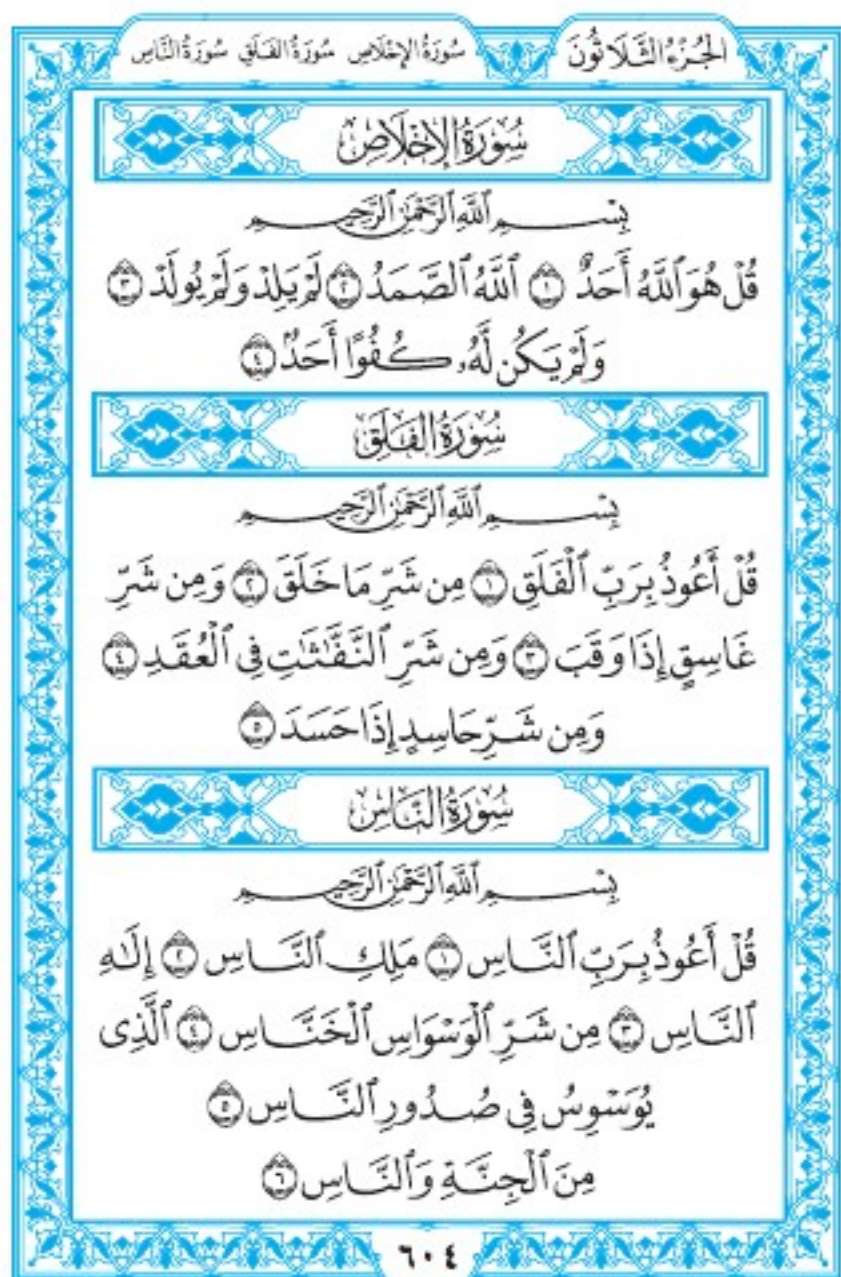 الجُزْءُ الثَّلَاثُونَ سُورَةُ الإِخْلَاصِ سُورَةُ الفَلَقِ سُورَةُ النَّاسِ
سُورَةُ الإِخْلَاصِ
بِسْمِ ٱللَّهِ ٱلرَّحْمَٰنِ ٱلرَّحِيمِ
قُلْ هُوَ ٱللَّهُ أَحَدٌ ١ ٱللَّهُ ٱلصَّمَدُ ٢ لَمْ يَلِدْ وَلَمْ يُولَدْ ٣
وَلَمْ يَكُن لَّهُۥ كُفُوًا أَحَدٌۢ ٤
سُورَةُ الفَلَقِ
بِسْمِ ٱللَّهِ ٱلرَّحْمَٰنِ ٱلرَّحِيمِ
قُلْ أَعُوذُ بِرَبِّ ٱلْفَلَقِ ١ مِن شَرِّ مَا خَلَقَ ٢ وَمِن شَرِّ
غَاسِقٍ إِذَا وَقَبَ ٣ وَمِن شَرِّ ٱلنَّفَّٰثَٰتِ فِي ٱلْعُقَدِ ٤
وَمِن شَرِّ حَاسِدٍ إِذَا حَسَدَ ٥
سُورَةُ النَّاسِ
بِسْمِ ٱللَّهِ ٱلرَّحْمَٰنِ ٱلرَّحِيمِ
قُلْ أَعُوذُ بِرَبِّ ٱلنَّاسِ ١ مَلِكِ ٱلنَّاسِ ٢ إِلَٰهِ
ٱلنَّاسِ ٣ مِن شَرِّ ٱلْوَسْوَاسِ ٱلْخَنَّاسِ ٤ ٱلَّذِى
يُوَسْوِسُ فِى صُدُورِ ٱلنَّاسِ ٥
مِنَ ٱلْجِنَّةِ وَٱلنَّاسِ ٦
٦٠٤